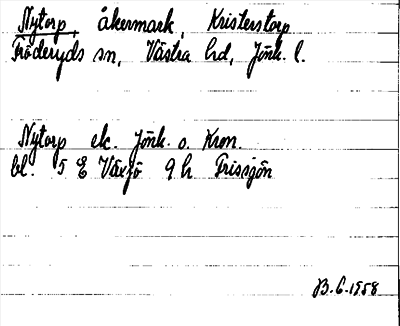 Nytorp, åkermark, Kristerstorp
Fröderyds sn, Västra hd, Jönk. l.
Nytorp ek. Jönk. o. Kron.
bl. 5 E Växjö 9 h Frissjön
B.G.1958